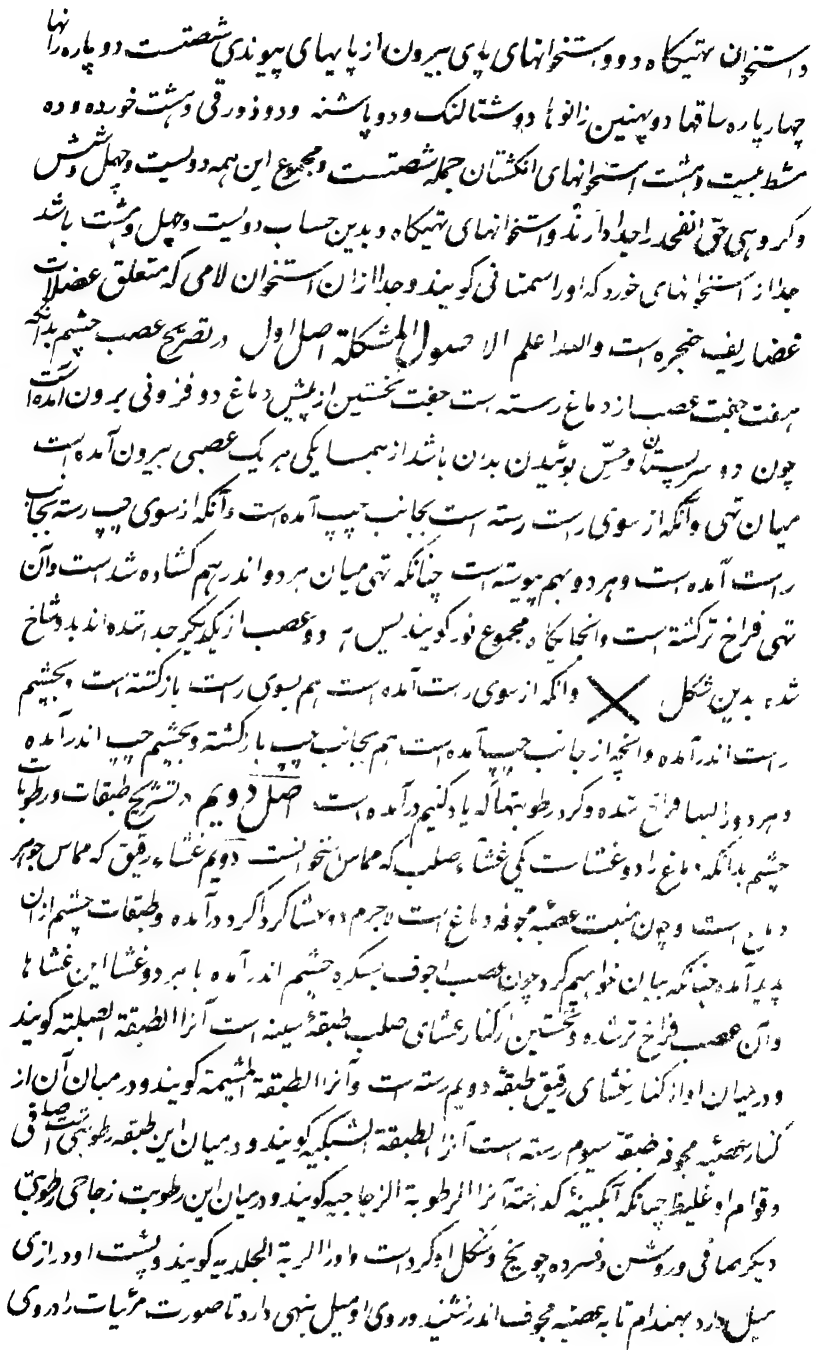 و استخوان تهیکاه دو و استخوانهای پای بیرون از پایهای پیوندی شصتست دو پاره رانها
چهار پاره ساقها دو پهنین زانوها دو شتالنک و دو پاشنه و دو ذورقی و هشت خورده و ده
مشط بیست و هشت استخوانهای انکشتان جمله شصتست و مجموع این همه دویست و چهل و شش
و کروهی حق انفحد را جدا دارند و استخوانهای تهیکاه و بدین حساب دویست و چهل و هشت باشد
جدا از استخوانهای خورد که او را سمسانی کویند و جدا از ان استخوان لامی که متعلق عضلات
غضاریف حنجره است والله اعلم الاصول المشکلة اصل اول در تشریح عصب چشم بدانکه
هفت جفت عصب از دماغ رسته است جفت نخستین از پیش دماغ دو فزونی برون آمده است
چون دو سر پستان و حسّ بوئیدن بدن باشد از همسایکی هر یک عصبی بیرون آمده است
میان تهی و آنکه از سوی راست رسته است بجانب چپ آمده است و آنکه از سوی چپ رسته بجانب
راست آمده است و هر دو بهم پیوسته است چنانکه تهی میان هر دو اندر هم کشاده شدست و آن
تهی فراخ تر کشته است و انجایکاه مجموع نور کویند پس هر دو عصب از یکدیکر جدا شده اند بدو شاخ
شده بدین شکل وانکه از سوی راست آمده است هم بسوی راست بازکشته است و بچشم
راست اندر آمده و انچه از جانب چپ آمده است هم بجانب چپ بازکشته و بچشم چپ اندر آمده
و هر دو را لبها فراخ شده و کرد رطوبتها که یاد کنیم در آمده است اصل دویم در تشریح طبقات و رطوبات
چشم بدانکه دماغ را دو غشاست یکی غشاء صلب که مماس استخوانست دویم غشاء رقیق که مماس جوهر
دماغ است و چون منبت عصبه مجوفه دماغ است لاجرم دو غشا کرداکرد در آمده و طبقات چشم از ان
پدید آمده چنانکه بیان خواهیم کرد چون عصب اجوف بسکره چشم اندر آمده با هر دو غشا این غشاها
و آن عصب فراخ تر شده و نخستین از کنار غشای صلب طبقهٔ سینه است آنرا الطبقة الصلبته کویند
و در میان او از کنار غشای رقیق طبقهٔ دویم رسته است و آنرا الطبقة المشیمة کویند و در میان آن از
کنار عصبه مجوفه طبقهٔ سیوم رسته است آنرا الطبقة الشبکیه کویند و در میان این طبقه رطوبتی است صافی
و قوام او غلیظ چنانکه آبکینهٔ کداخته آنرا الرطوبة الزجاجیه کویند و در میان این رطوبت زجاجی رطوبتی
دیکر صافی و روشن و فسرده چو یخ و شکل او کرد است و او را الرطوبة الجلدیه کویند و پشت او درازی
میل دارد بهندام تا به عصبه مجوف اندر نشیند و روی او میل بپهنی دارد تا صورت مرئیات را در وی